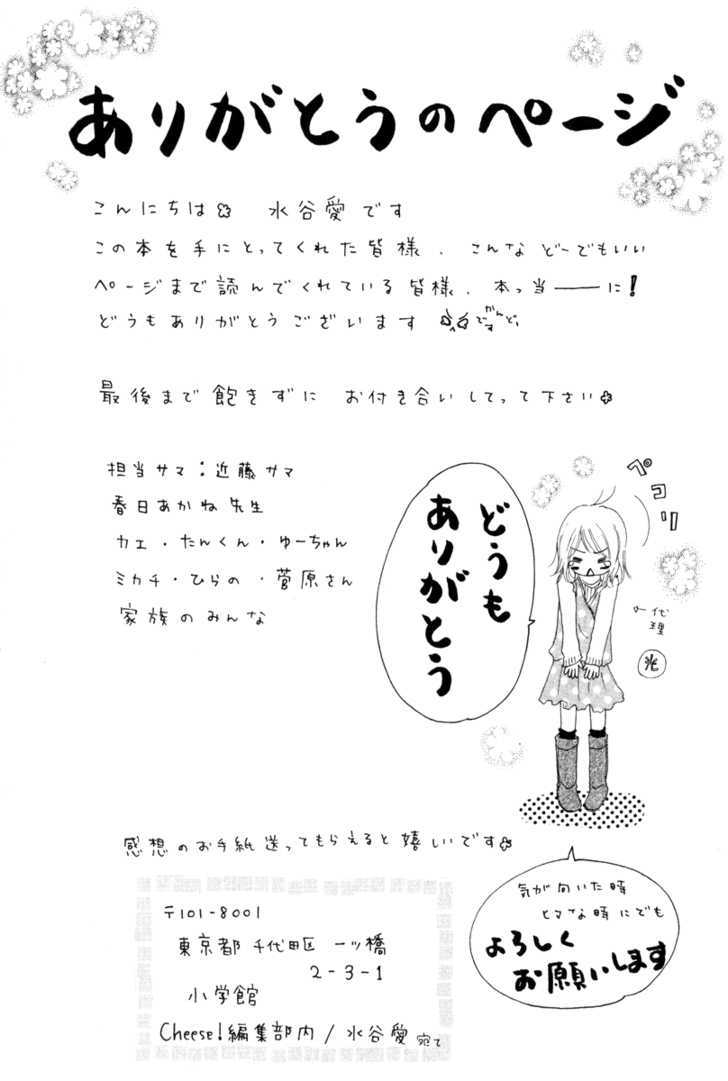 ありがとうのページ
こんにちは 水谷愛です
この本を手にとってくれた皆様、こんなどーでもいい
ページまで読んでくれている皆様、本っ当――に!
どうもありがとうございます
最後まで飽きずに お付き合いしてって下さい
担当サマ:近藤サマ
春日あかね先生
カエ・たんくん・ゆーちゃん
ミカチ・ひらの・菅原さん
家族のみんな
ペコリ
どうも
ありがとう
代理
感想のお手紙送ってもらえると嬉しいです
気が向いた時
ヒマな時にでも
よろしく
お願いします
〒101-8001
東京都 千代田区 一ッ橋
2-3-1
小学館
Cheese!編集部内/水谷愛 宛て